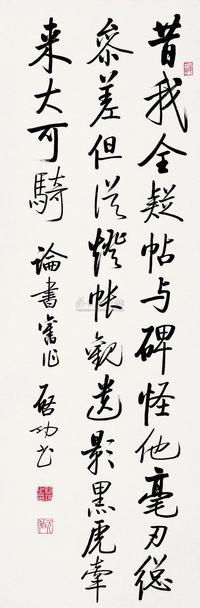 昔我全疑帖与碑怪他毫刃总
参差但从灯帐观遗影黑虎牵
来大可騎 論書舊作 启功书